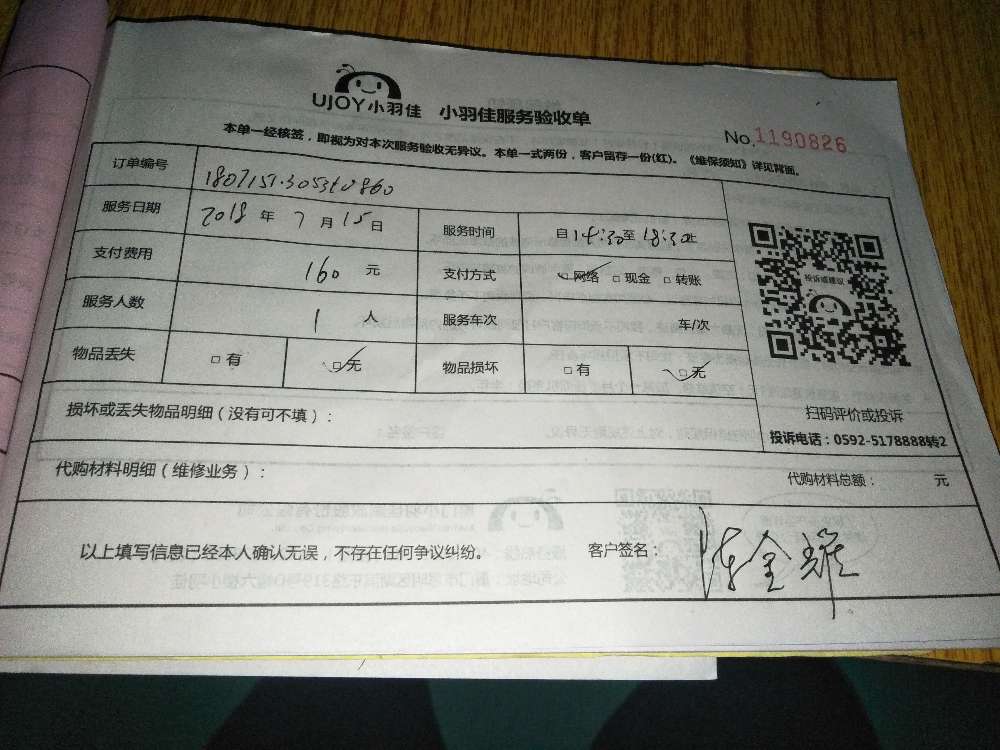 UJOY小羽佳 小羽佳服务验收单
No.1190826
本单一经核签，即视为对本次服务验收无异议。本单一式两份，客户留存一份(红)。《维保须知》详见背面。
订单编号
服务日期 2018 年 7 月 15 日 服务时间 自 14:30 至 18:30 止
支付费用 160 元 支付方式 网络 现金 转账
服务人数 1 人 服务车次 车/次
物品丢失 有 无 物品损坏 有 无
投诉或建议
扫码评价或投诉
投诉电话：0592-5178888转2
损坏或丢失物品明细（没有可不填）：
代购材料明细（维修业务）： 代购材料总额： 元
以上填写信息已经本人确认无误，不存在任何争议纠纷。 客户签名：陈金耀